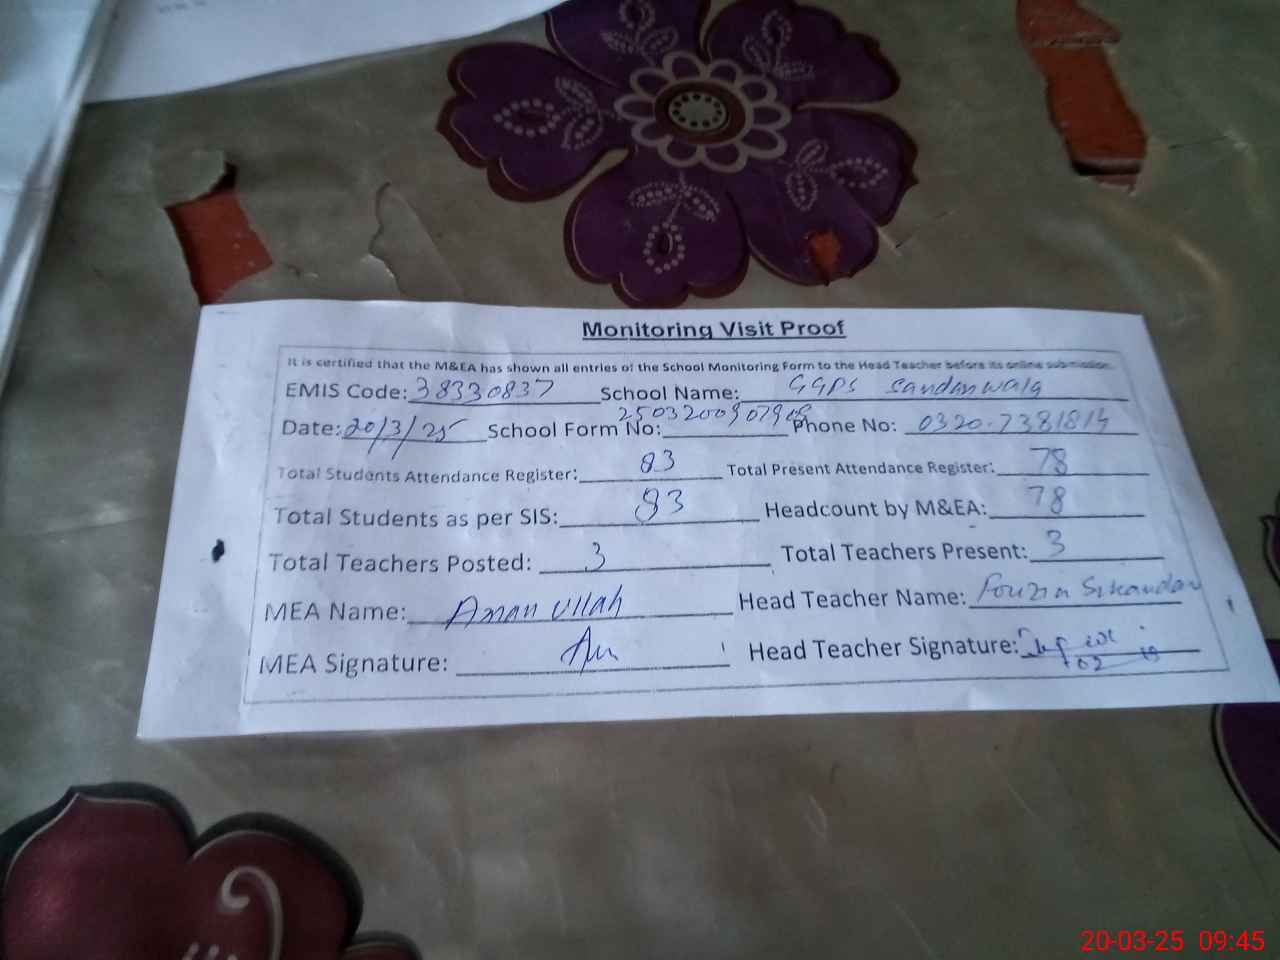 Monitoring Visit Proof
It is certified that the M&EA has shown all entries of the School Monitoring Form to the Head Teacher before its online submission.
EMIS Code: 38330837 School Name: GGPS Sandanwala
Date: 20/3/25 School Form No: 2503200907908 Phone No: 0320-7381814
Total Students Attendance Register: 83 Total Present Attendance Register: 78
Total Students as per SIS: 83 Headcount by M&EA: 78
Total Teachers Posted: 3 Total Teachers Present: 3
MEA Name: Aman Ullah Head Teacher Name: Fouzia Sikandar
MEA Signature: Head Teacher Signature:
20-03-25 09:45